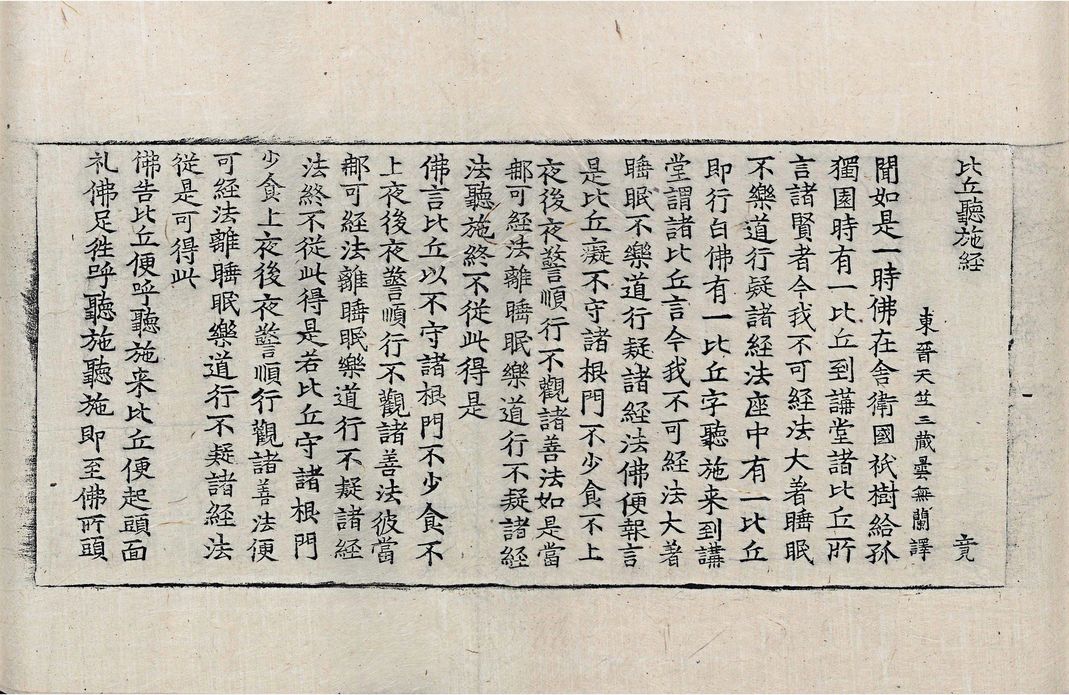 比丘聽施経 竟
東晉天竺三藏曇無蘭譯
聞如是一時佛在舍衛國祇樹給孤
獨園時有一比丘到講堂諸比丘所
言諸賢者今我不可経法大著睡眠
不樂道行疑諸経法座中有一比丘
即行白佛有一比丘字聽施来到講
堂謂諸比丘言今我不可経法大著
睡眠不樂道行疑諸経法佛便報言
是比丘癡不守諸根門不少食不上
夜後夜警順行不觀諸善法如是當
那可経法離睡眠樂道行不疑諸経
法聽施終不従此得是
佛言比丘以不守諸根門不少食不
上夜後夜警順行不觀諸善法彼當
那可経法離睡眠樂道行不疑諸経
法終不従此得是若比丘守諸根門
少食上夜後夜警順行觀諸善法便
可経法離睡眠樂道行不疑諸経法
従是可得此
佛告比丘便呼聽施来比丘便起頭面
礼佛足往呼聽施聽施即至佛所頭